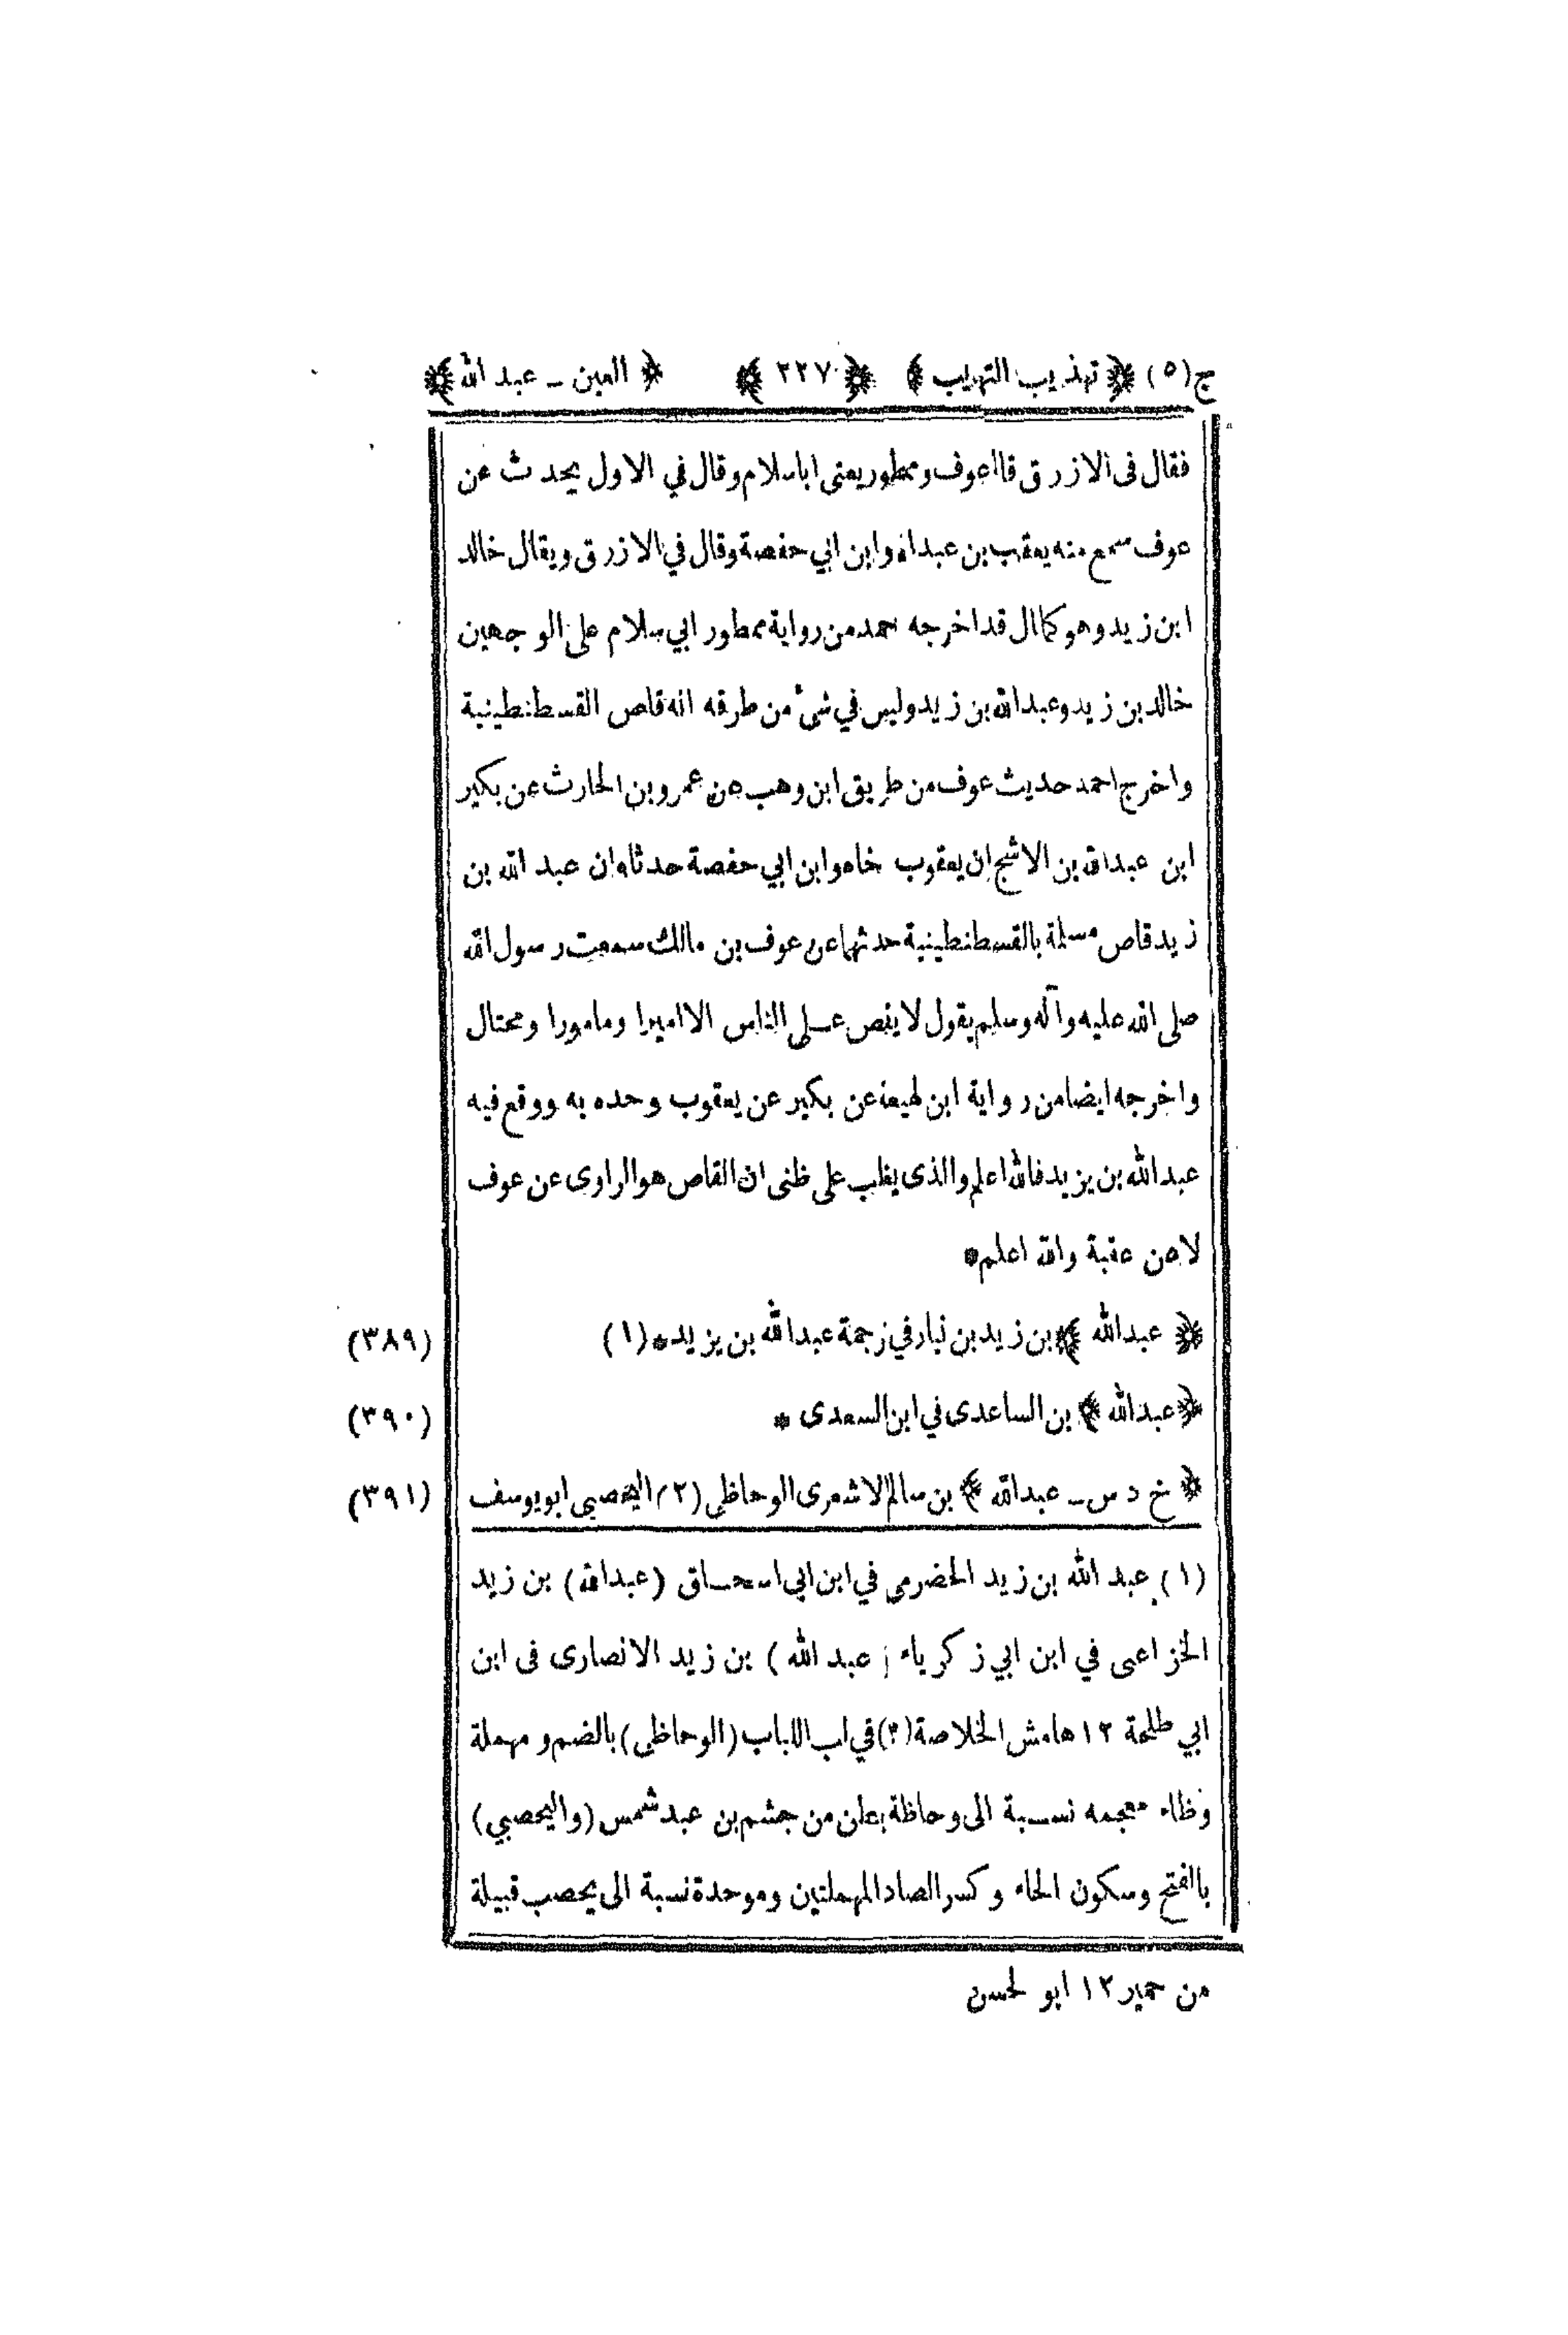 ج(٥) ﴿تهذيب التهذيب﴾ ﴿٢٢٧﴾ ﴿العين ـ عبد الله﴾
فقال فى الازرق قالعوف وممطور يعنى اباسلام وقال في الاول يحدث عن
عوف سمع منه يعقوب بن عبدالله وابن ابي حفصة وقال في الازرق ويقال خالد
ابن زيد وهو كما قال قد اخرجه احمد من رواية ممطور ابي سلام على الوجهين
خالد بن زيد وعبدالله بن زيد وليس في شئ من طرقه انه قاص القسطنطينية
واخرج احمد حديث عوف من طريق ابن وهب عن عمرو بن الحارث عن بكير
ابن عبدالله بن الاشج ان يعقوب اخاه وابن ابي حفصة حدثاه ان عبد الله بن
زيد قاص مسلمة بالقسطنطينية حدثهما عن عوف بن مالك سمعت رسول الله
صلى الله عليه وآله وسلم يقول لا يقص على الناس الا اميرا ومامورا ومحتال
واخرجه ايضا من رواية ابن لهيعة عن بكير عن يعقوب وحده به ووقع فيه
عبدالله بن يزيد فالله اعلم والذى يغلب على ظنى ان القاص هو الراوى عن عوف
لا عن عقبة والله اعلم*
﴿عبدالله﴾ بن زيد بن نيار في ترجمة عبدالله بن يزيد* (١) (٣٨٩)
﴿عبدالله﴾ بن الساعدى في ابن السعدى * (٣٩٠)
﴿خ د س ـ عبدالله﴾ بن سالم الاشعرى الوحاظى (٢) اليحصبي ابويوسف (٣٩١)
(١) عبد الله بن زيد الحضرمى في ابن ابي اسحاق (عبدالله) بن زيد
الخزاعى في ابن ابي زكرياء (عبد الله) بن زيد الانصارى فى ابن
ابي طلحة ١٢ هامش الخلاصة (٢) في لب اللباب (الوحاظى) بالضم ومهملة
وظاء معجمه نسبة الى وحاظة بطن من جشم بن عبد شمس (واليحصبي)
بالفتح وسكون الحاء وكسر الصاد المهملتين وموحدة نسبة الى يحصب قبيلة
من حمير ١٢ ابو لحسن